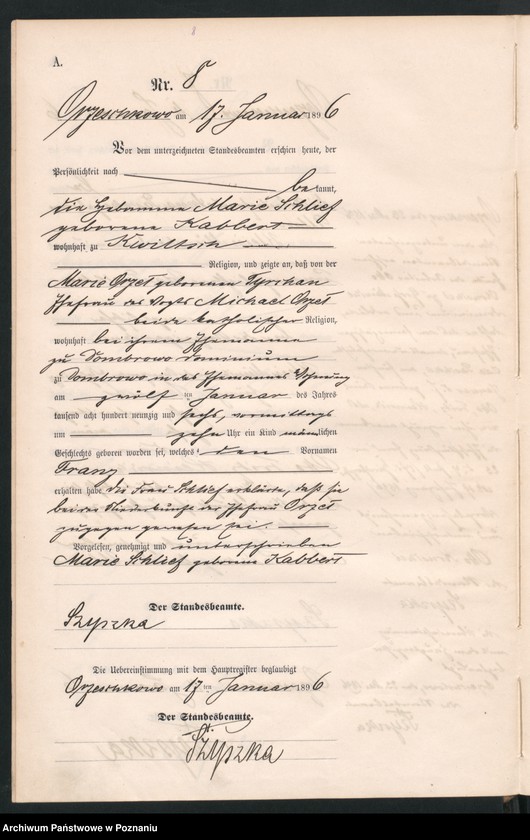 A.
Nr. 8
Orzeschkowo am 17. Januar 1896
Vor dem unterzeichneten Standesbeamten erschien heute, der
Persönlichkeit nach bekannt,
die Hebamme Marie Schlief
geborene Kabbert
wohnhaft zu Kwiltsch
Religion, und zeigte an, daß von der
Marie Orzet geborenen
Ehefrau des Vogts Michael Orzet
beide katholischer Religion,
wohnhaft bei ihrem Ehemanne
zu Dombrowo Dominium
zu Dombrowo in des Ehemannes Wohnung
am zwölf ten Januar des Jahres
tausend acht hundert neunzig und sechs, vormittags
um zehn Uhr ein Kind männlichen
Geschlechts geboren worden sei, welches den Vornamen
Franz
erhalten habe. Die Frau Schlief erklärte, daß sie
bei der Niederkunft der Ehefrau Orzet
zugegen gewesen sei.
Vorgelesen, genehmigt und unterschrieben
Marie Schlief geborene Kabbert
Der Standesbeamte.
Szyszka
Die Uebereinstimmung mit dem Hauptregister beglaubigt
Orzeschkowo am 17 ten Januar 1896
Der Standesbeamte.
Szyszka
Archiwum Państwowe w Poznaniu